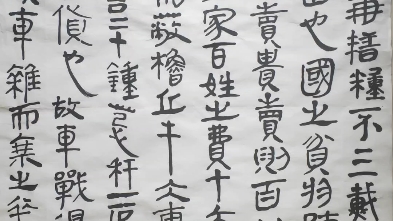 籍糧不三載
也國之貧於師
賣貴賣則百
家百姓之費十去
蔽櫓丘牛大車
二十鍾秆一石
貨也故車戰得
車雜而乘之卒